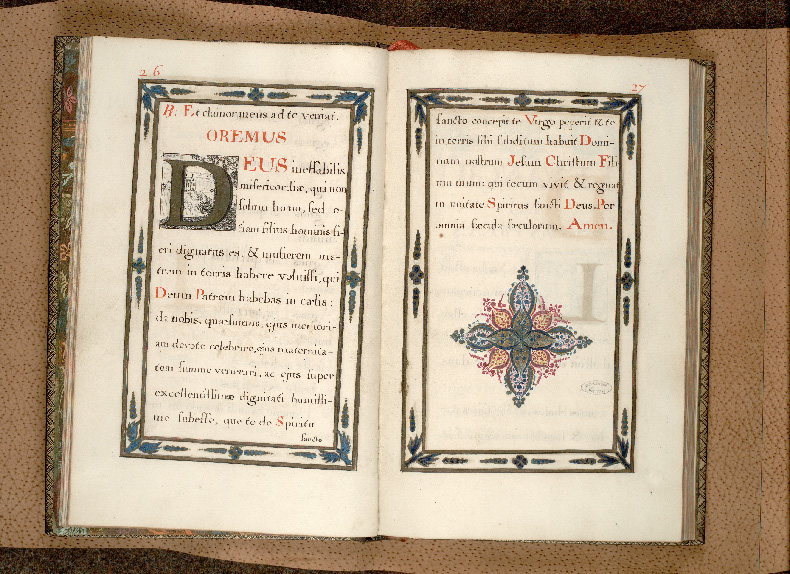 26
R: Et clamor meus ad te veniat.
OREMUS
DEUS ineffabilis
misericordiæ, qui non
solum homo, sed e-
tiam filius hominis fi-
eri dignatus es, & mulierem ma-
trem in terris habere voluisti, qui
Deum Patrem habebas in cælis:
da nobis, quæsumus, ejus memori-
am devote celebrare, ejus maternita-
tem summe venerari, ac ejus super
excellentissimæ dignitati humilli-
me subesse, que te de Spiritu
sancto
27
sancto concepit te Virgo peperit & te
in terris sibi subditum habuit Domi-
num nostrum Jesum Christum Fili
um tuum: qui tecum vivit & regnat
in unitate Spiritus sancti Deus. Per
omnia sæcula sæculorum. Amen.